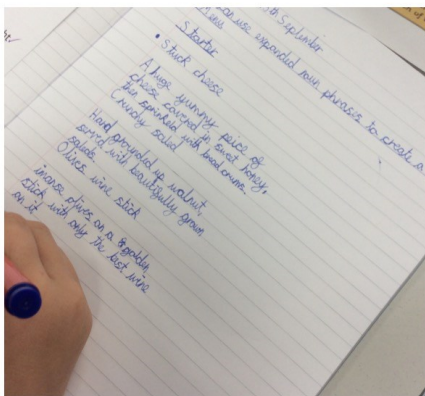 th September
can use expanded noun phrases to create a
Menu
Starter
• Stuck cheese
A huge yummy peice of
cheese covered in sweet honey,
then sprinkled with bread crums.
Crunchy salad
Hand grounded up walnut,
served with beautifully grown
salad.
Olives wine stick
imanse olives on a golden
stick with only the best wine
on it